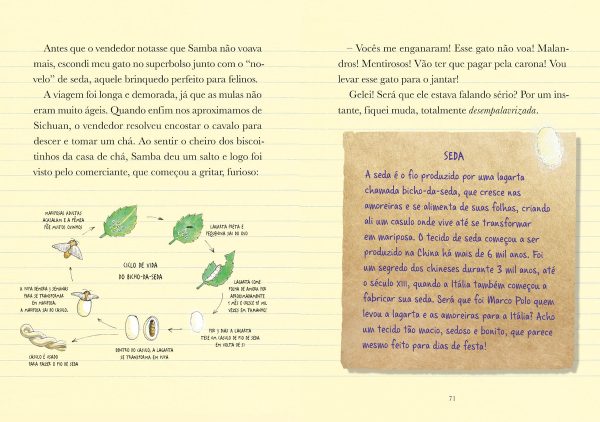 Antes que o vendedor notasse que Samba não voava
mais, escondi meu gato no superbolso junto com o “no-
velo” de seda, aquele brinquedo perfeito para felinos.
A viagem foi longa e demorada, já que as mulas não
eram muito ágeis. Quando enfim nos aproximamos de
Sichuan, o vendedor resolveu encostar o cavalo para
descer e tomar um chá. Ao sentir o cheiro dos biscoi-
tinhos da casa de chá, Samba deu um salto e logo foi
visto pelo comerciante, que começou a gritar, furioso:
MARIPOSAS ADULTAS
ACASALAM E A FÊMEA
PÕE MUITOS OVINHOS
LAGARTA PRETA E
PEQUENINA SAI DO OVO
LAGARTA COME
FOLHA DE AMORA POR
APROXIMADAMENTE
1 MÊS E CRESCE 10 MIL
VEZES EM TAMANHO!
POR 3 DIAS A LAGARTA
TECE UM CASULO DE FIO DE SEDA
EM VOLTA DE SI
DENTRO DO CASULO, A LAGARTA
SE TRANSFORMA EM PUPA
CASULO É USADO
PARA FAZER O FIO DE SEDA
A PUPA DEMORA 3 SEMANAS
PARA SE TRANSFORMAR
EM MARIPOSA.
A MARIPOSA SAI DO CASULO.
CICLO DE VIDA
DO BICHO-DA-SEDA
– Vocês me enganaram! Esse gato não voa! Malan-
dros! Mentirosos! Vão ter que pagar pela carona! Vou
levar esse gato para o jantar!
Gelei! Será que ele estava falando sério? Por um ins-
tante, fiquei muda, totalmente desempalavrizada.
SEDA
A seda é o fio produzido por uma lagarta
chamada bicho-da-seda, que cresce nas
amoreiras e se alimenta de suas folhas, criando
ali um casulo onde vive até se transformar
em mariposa. O tecido de seda começou a ser
produzido na China há mais de 6 mil anos. Foi
um segredo dos chineses durante 3 mil anos, até
o século XIII, quando a Itália também começou a
fabricar sua seda. Será que foi Marco Polo quem
levou a lagarta e as amoreiras para a Itália? Acho
um tecido tão macio, sedoso e bonito, que parece
mesmo feito para dias de festa!
71